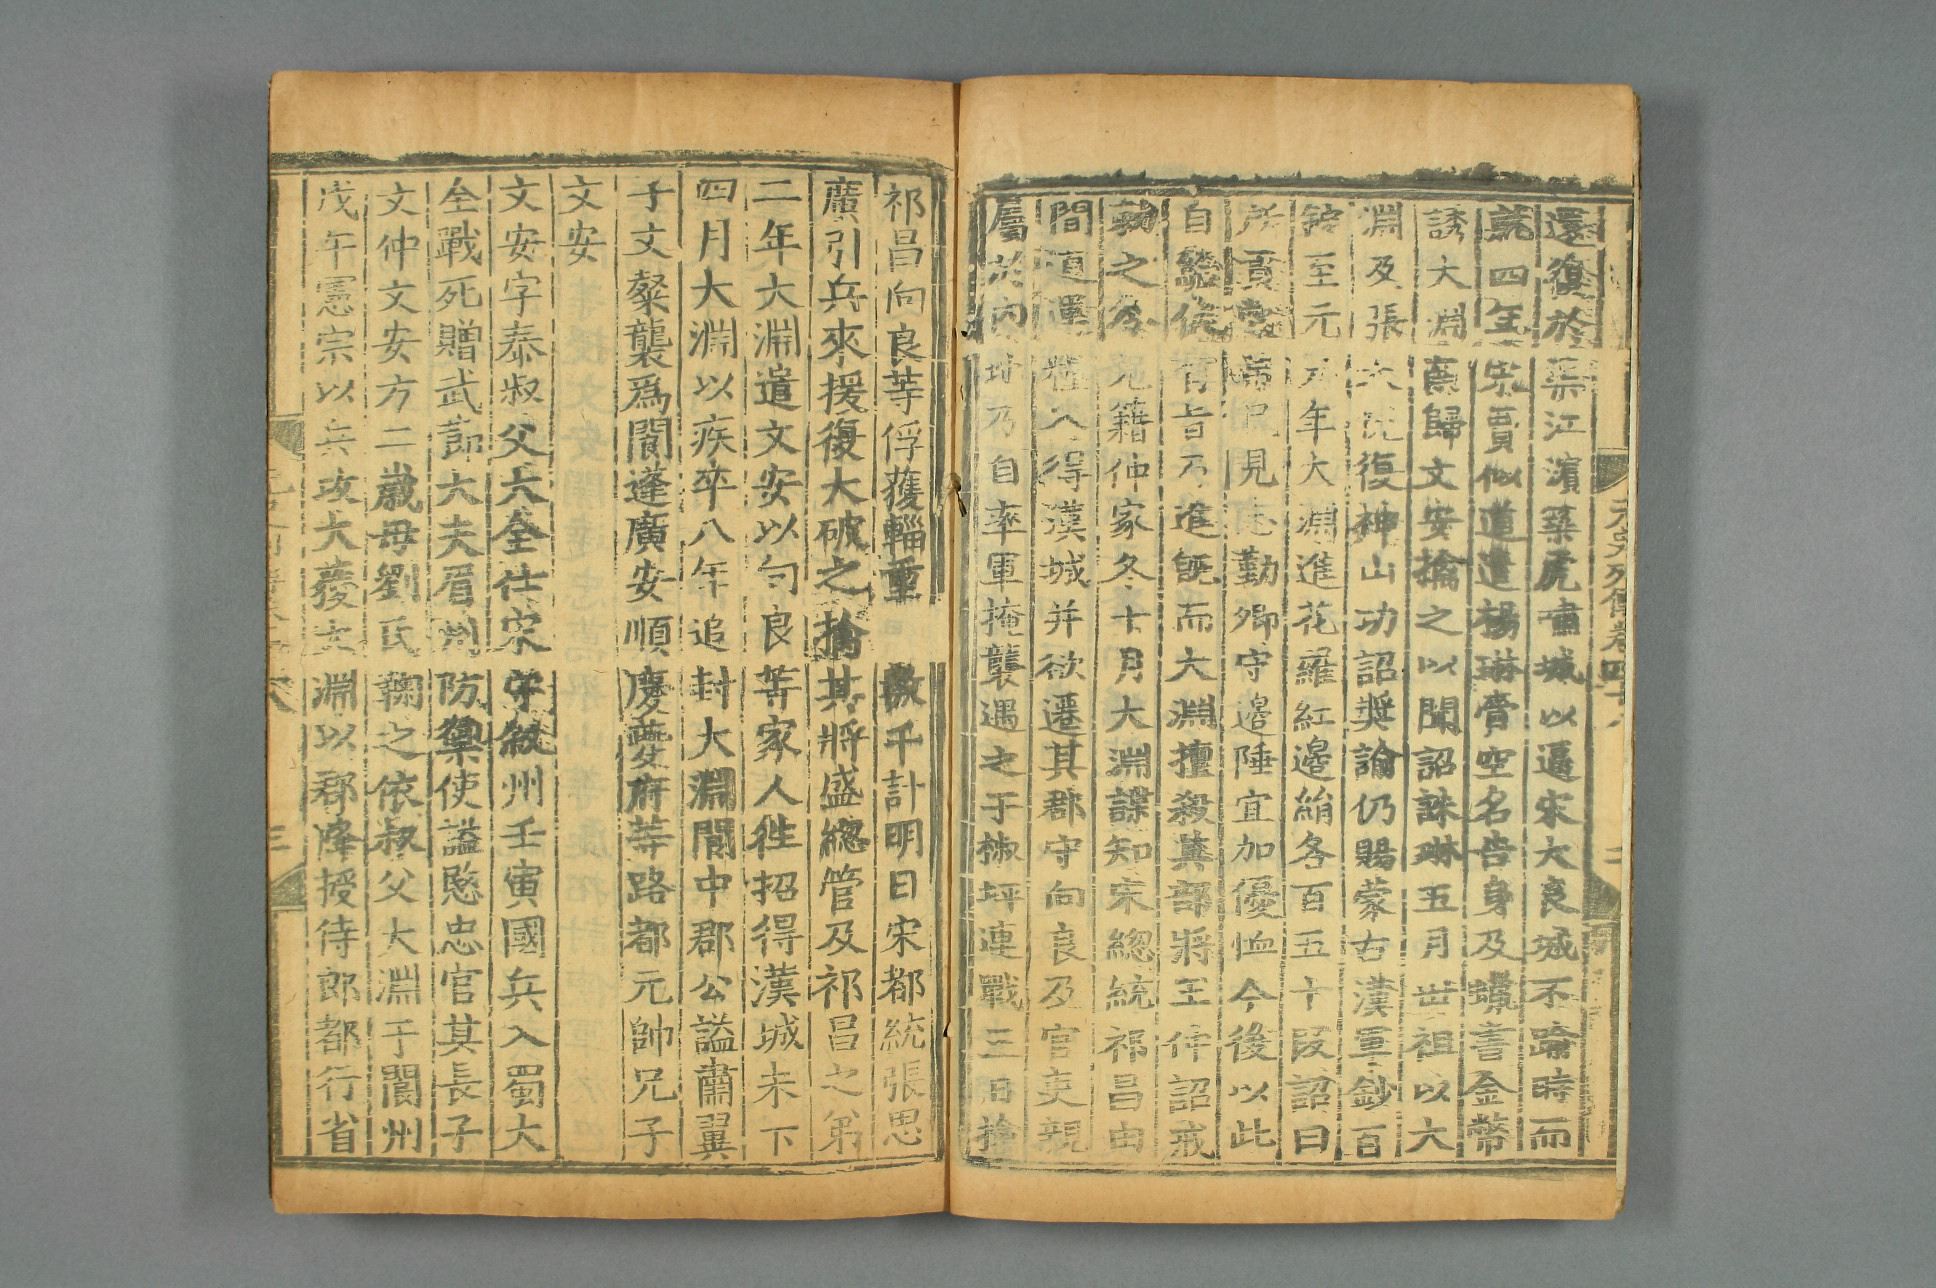 還復於渠江濱築虎嘯城以逼宋大良城不踰時而
就四年宋賈似道遣楊琳賫空名告身及蠟書金幣
誘大淵南歸文安擒之以聞詔誅琳五月世祖以大
淵及張大悅復神山功詔奬諭仍賜蒙古漢軍鈔百
錠至元元年大淵進花羅紅邊絹各百五十段詔曰
所貢幣帛已見忠勤卿守邊陲宜加優恤今後以此
自給俟有旨乃進旣而大淵擅殺其部將王仲詔戒
勑之令免籍仲家冬十月大淵諜知宋總統祁昌由
間道運糧入得漢城并欲遷其郡守向良及官吏親
屬於內地乃自率軍掩襲遇之于椒坪連戰三日擒
祁昌向良等俘獲輜重數千計明日宋都統張思
廣引兵來援復大破之擒其將盛總管及祁昌之弟
二年大淵遣文安以向良等家人徃招得漢城未下
四月大淵以疾卒八年追封大淵閬中郡公謚肅翼
子文粲襲爲閬蓬廣安順慶夔府等路都元帥兄子
文安
文安字泰叔父大全仕宋守叙州壬寅國兵入蜀大
全戰死贈武節大夫眉州防禦使謚愍忠官其長子
文仲文安方二歲母劉氏鞠之依叔父大淵于閬州
戊午憲宗以兵攻大獲大淵以郡降授侍郎都行省
元史列傳卷四十八
二
三